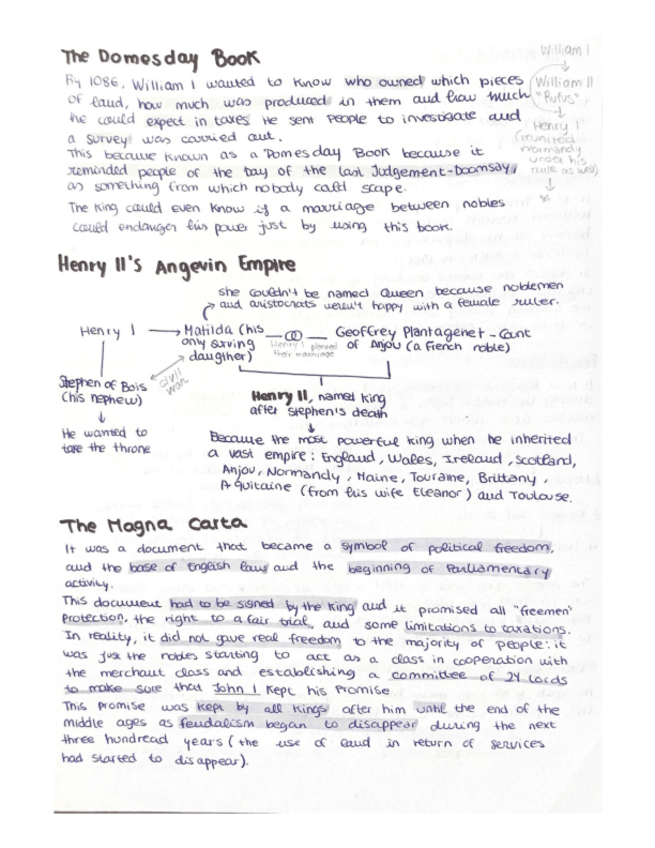 The Domesday Book
William I
By 1086, William I wanted to know who owned which pieces
of land, how much was produced in them and how much
he could expect in taxes. He sent people to investigate and
a survey was carried out.
William II
"Rufus"
Henry I
(reunited
normandy
under his
rule as well)
This became known as a Domesday Book because it
reminded people of the Day of the last Judgement-Doomsay,
as something from which nobody could scape.
The King could even know if a marriage between nobles
could endanger his power just by using this book.
Henry II's Angevin Empire
she couldn't be named Queen because noblemen
and aristocrats weren't happy with a female ruler.
Henry I
Matilda (his
only surving
daugther)
Henry I planned
their marriage
Geoffrey Plantagenet - Count
of Anjou (a French noble)
Stephen of Bois
(his nephew)
civil
war
He wanted to
take the throne
Henry II, named king
after Stephen's death
Because the most powerful king when he inherited
a vast empire: England, Wales, Ireland, Scotland,
Anjou, Normandy, Maine, Touraine, Brittany,
Aquitaine (from his wife Eleanor) and Toulouse.
The Magna Carta
It was a document that became a symbol of political freedom,
and the base of English laws and the beginning of Parliamentary
activity.
This document had to be signed by the King and it promised all "freemen"
Protection, the right to a fair trial, and some limitations to taxations.
In reality, it did not gave real freedom to the majority of people: it
was just the nobles starting to act as a class in cooperation with
the merchant class and establishing a committee of 24 lords
to make sure that John I kept his promise
This promise was kept by all Kings after him until the end of the
middle ages as feudalism began to disappear during the next
three hundread years (the use of land in return of services
had started to disappear).